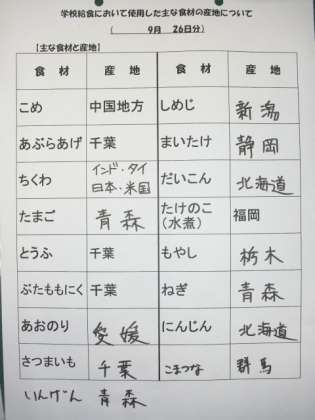 学校給食において使用した主な食材の産地について
( 9月 26日分)
【主な食材と産地】
食材 産地 食材 産地
こめ 中国地方 しめじ 新潟
あぶらあげ 千葉 まいたけ 静岡
ちくわ インド・タイ 日本・米国 だいこん 北海道
たまご 青森 たけのこ(水煮) 福岡
とうふ 千葉 もやし 栃木
ぶたももにく 千葉 ねぎ 青森
あおのり 愛媛 にんじん 北海道
さつまいも 千葉 こまつな 群馬
いんげん 青森